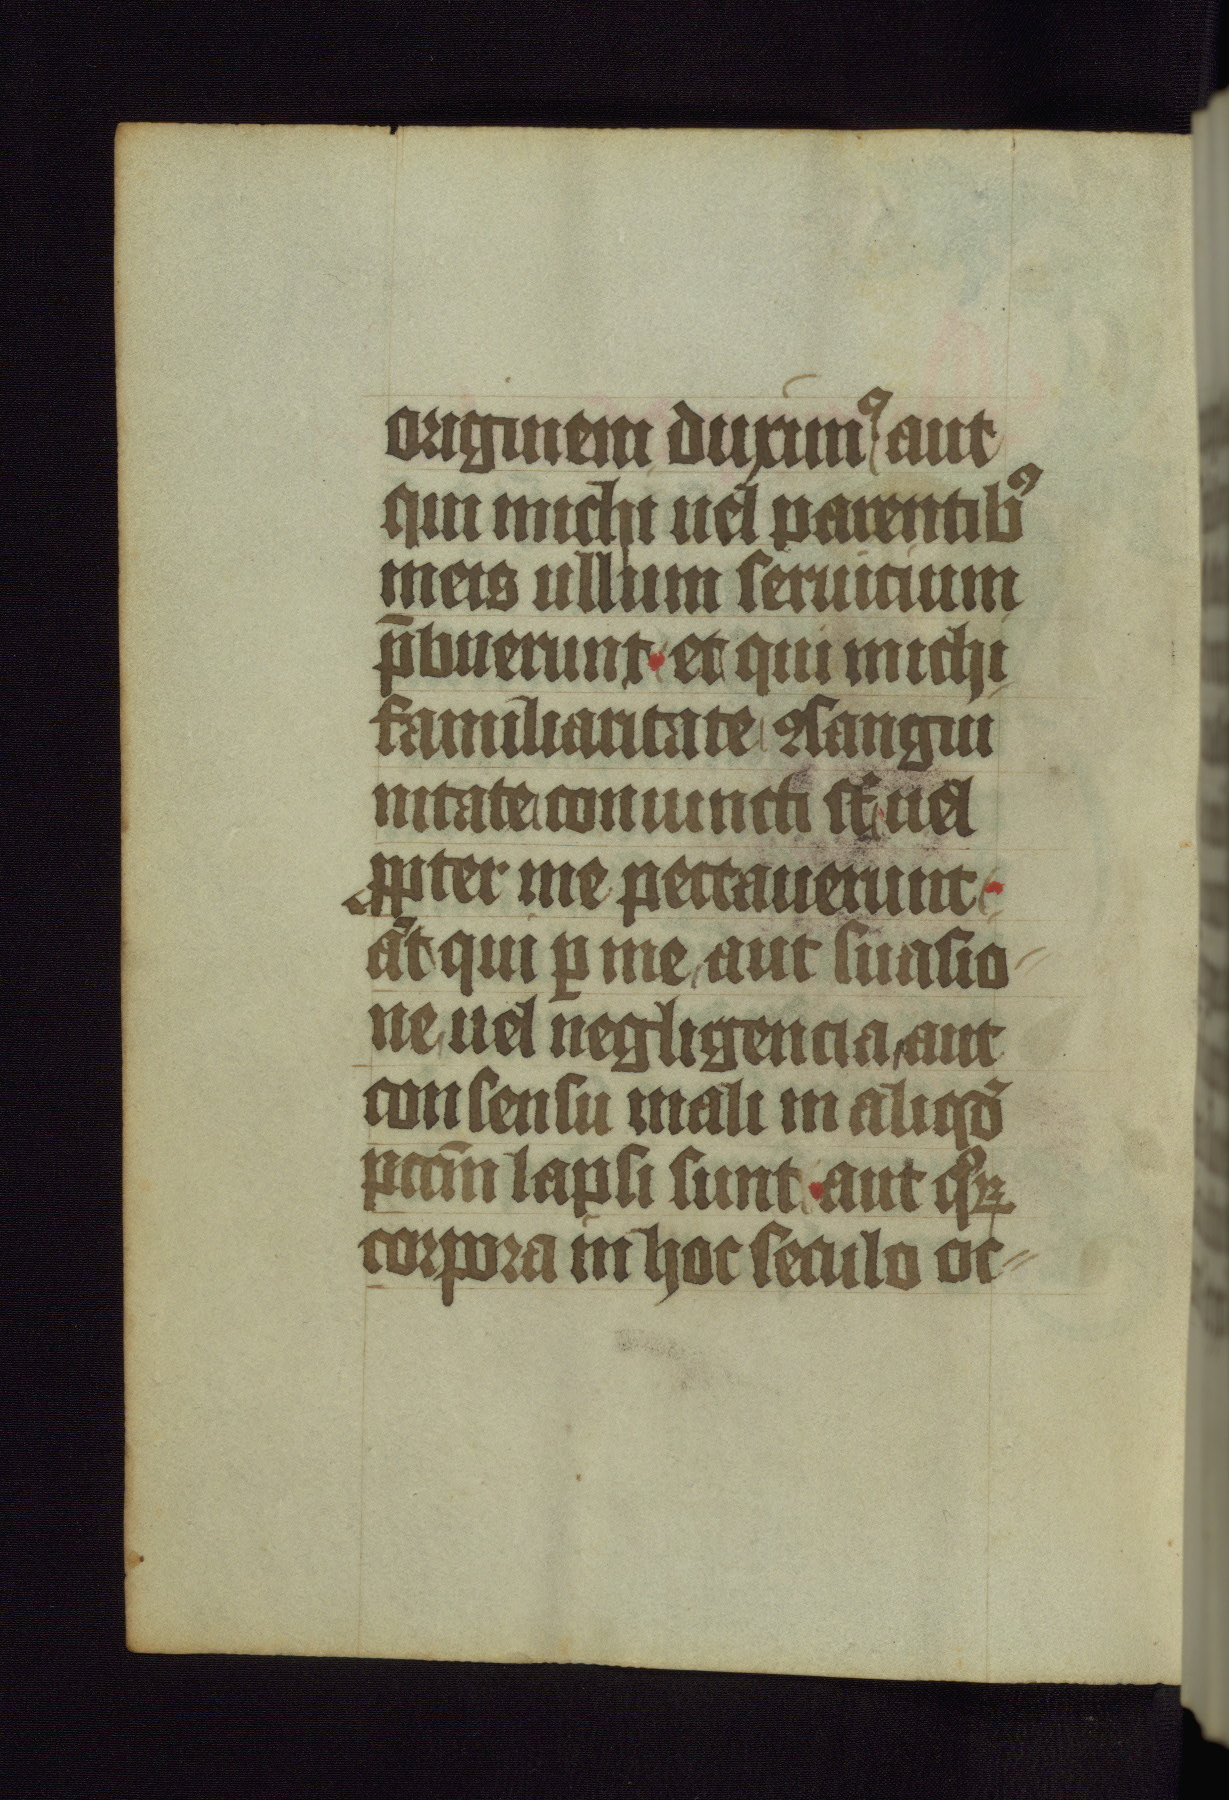 originem duximꝰ aut
qui michi uel parentibꝰ
meis ullum seruicium
p̄buerunt · et qui michi
familiaritate ꝯsangui
nitate coniuncti sūt uel
ꝓpter me peccauerunt ·
aut qui ꝑ me aut suasio
ne uel negligencia aut
consensu mali in aliqđ
pccm̄ lapsi sunt · aut qͦꝝ
corpora in hoc seculo oc